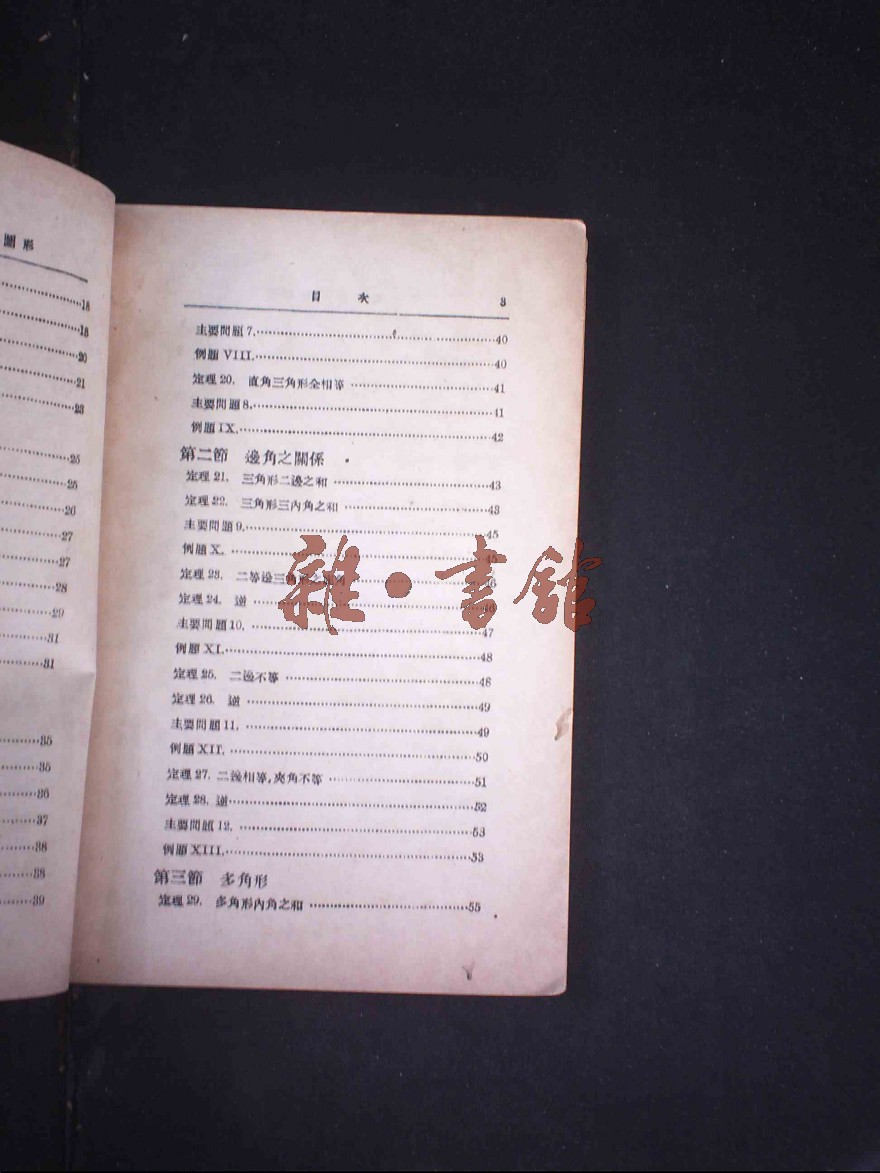 圖形
18
18
20
21
23
25
25
26
27
27
28
29
31
31
35
35
36
37
38
38
39
目 次 3
主要問題7. 40
例題VIII. 40
定理20. 直角三角形全相等 41
主要問題8. 41
例題IX. 42
第二節 邊角之關係
定理21. 三角形二邊之和 43
定理22. 三角形三內角之和 43
主要問題9. 45
例題X. 45
定理23. 二等邊三 46
定理24. 逆 46
主要問題10. 47
例題XI. 48
定理25. 二邊不等 48
定理26. 逆 49
主要問題11. 49
例題XII. 50
定理27. 二邊相等,夾角不等 51
定理28. 逆 52
主要問題12. 53
例題XIII. 53
第三節 多角形
定理29. 多角形內角之和 55
雜·書館